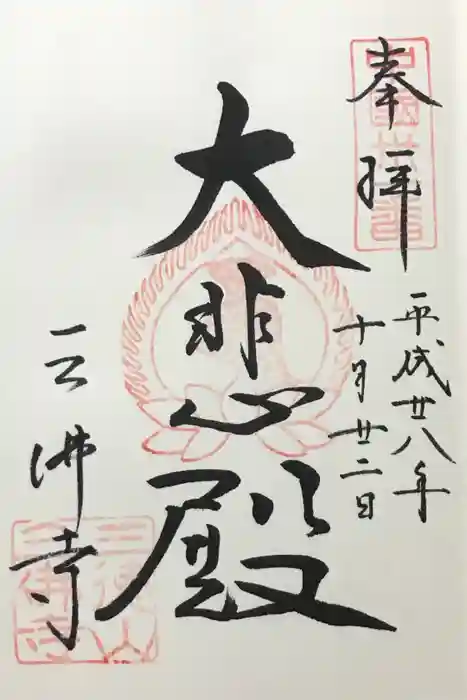 奉拝
平成廿八年
十月廿二日
大悲殿
三佛寺